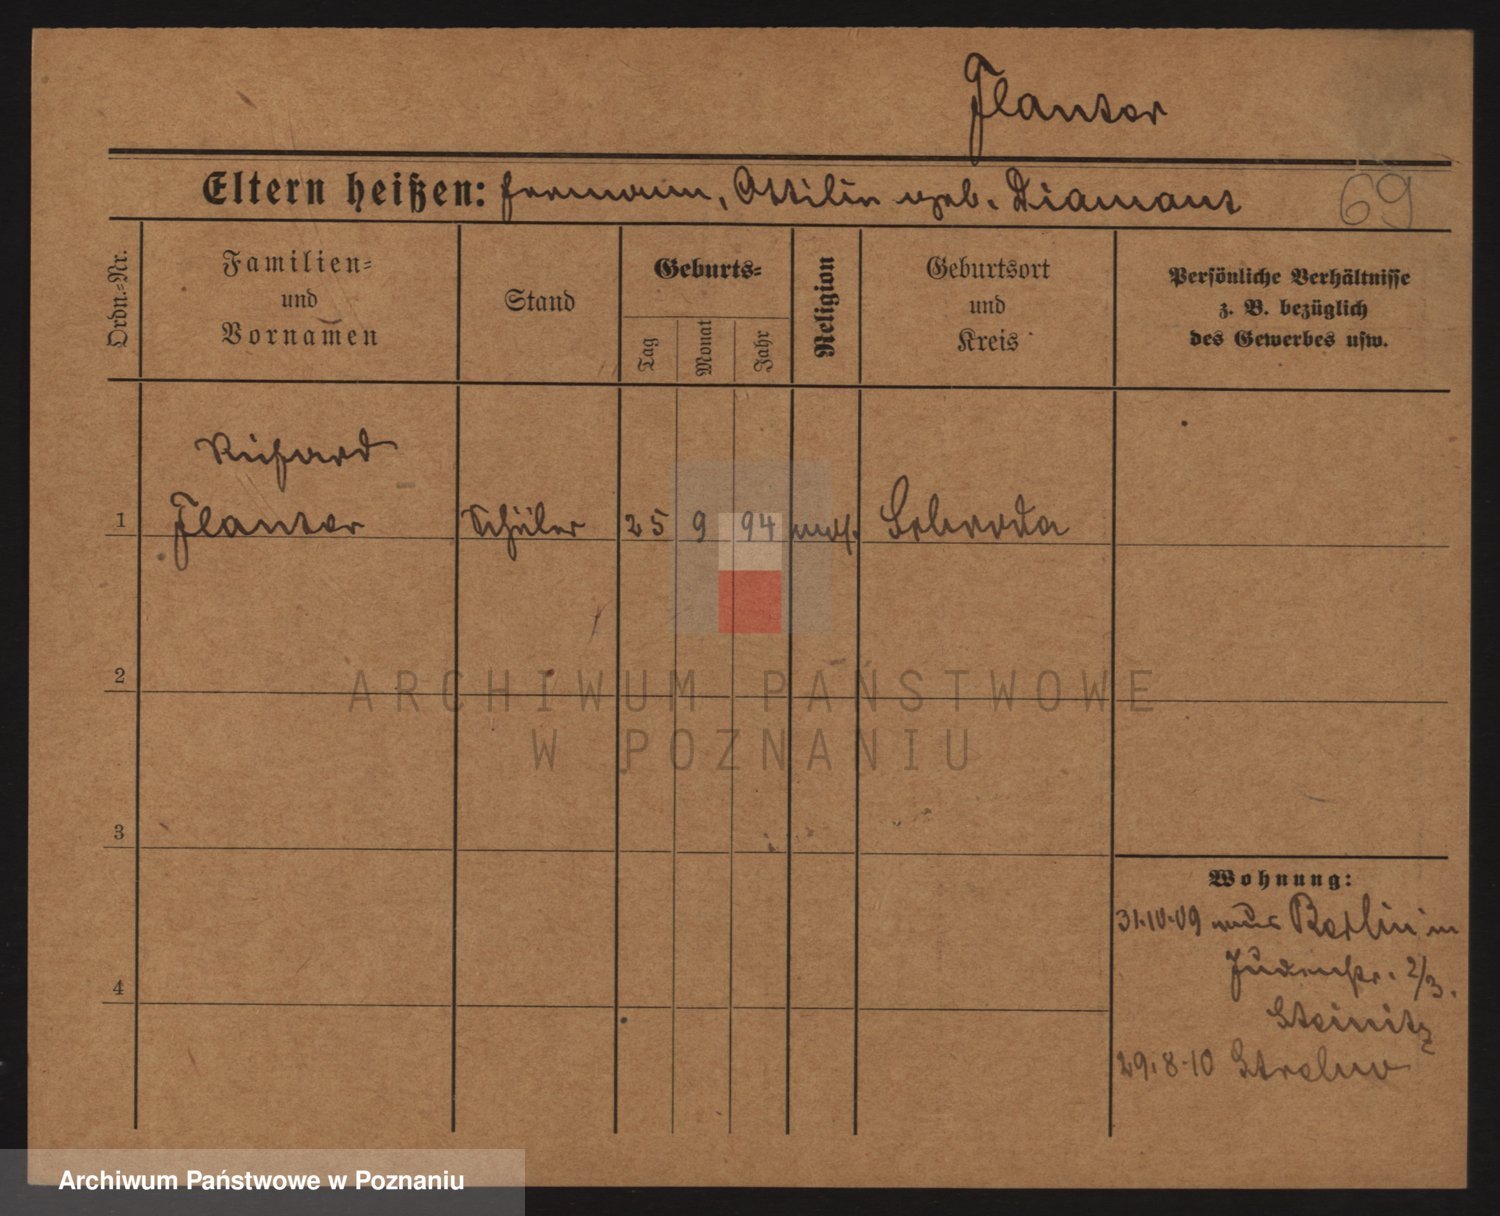 Flanter
Eltern heißen: Hermann, Ottilie geb. Diamant
69
Ordn.-Nr.
Familien-
und
Vornamen
Stand
Geburts-
Tag
Monat
Jahr
Religion
Geburtsort
und
Kreis
Persönliche Verhältnisse
z. B. bezüglich
des Gewerbes usw.
Richard
1 Flanter Schüler 25 9 94 mos. Schroda
2
ARCHIWUM PAŃSTWOWE
W POZNANIU
3
4
Wohnung:
31.10.09 aus Berlin in
Judenstr. 2/3.
Steinitz
29.8.10
Archiwum Państwowe w Poznaniu